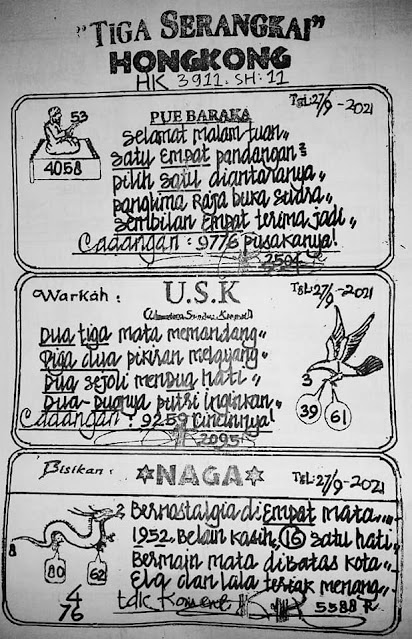 "TIGA SERANGKAI"
HONGKONG
HK 3911. SH: 11
PUE BARAKA
Tgl: 27/9 - 2021
53
4058
Selamat malam tuan,,
Satu Empat pandangan²
pilih satu diantaranya
panglima Raja buka Sudra,,
Sembilan Empat terima jadi,,
Cadangan : 9776 pusakanya!
2504
Warkah :
U.S.K
Tgl: 27/9 - 2021
Dua tiga mata memandang,,
Tiga dua pikiran melayang
Dua sejoli mendua hati,,
Dua-duanya putri inginkan,,
Cadangan : 9259 Cincinnya!
2095
3
39
61
Bisikan :
NAGA
Tgl: 27/9 - 2021
8
2
80
62
4
76
Bernostalgia di Empat mata,,,,
1952 Belain kasih, 16 satu hati,,
Bermain mata dibatas kota,,
Ela dan lala teriak menang,,
tdk Koment
5588 R